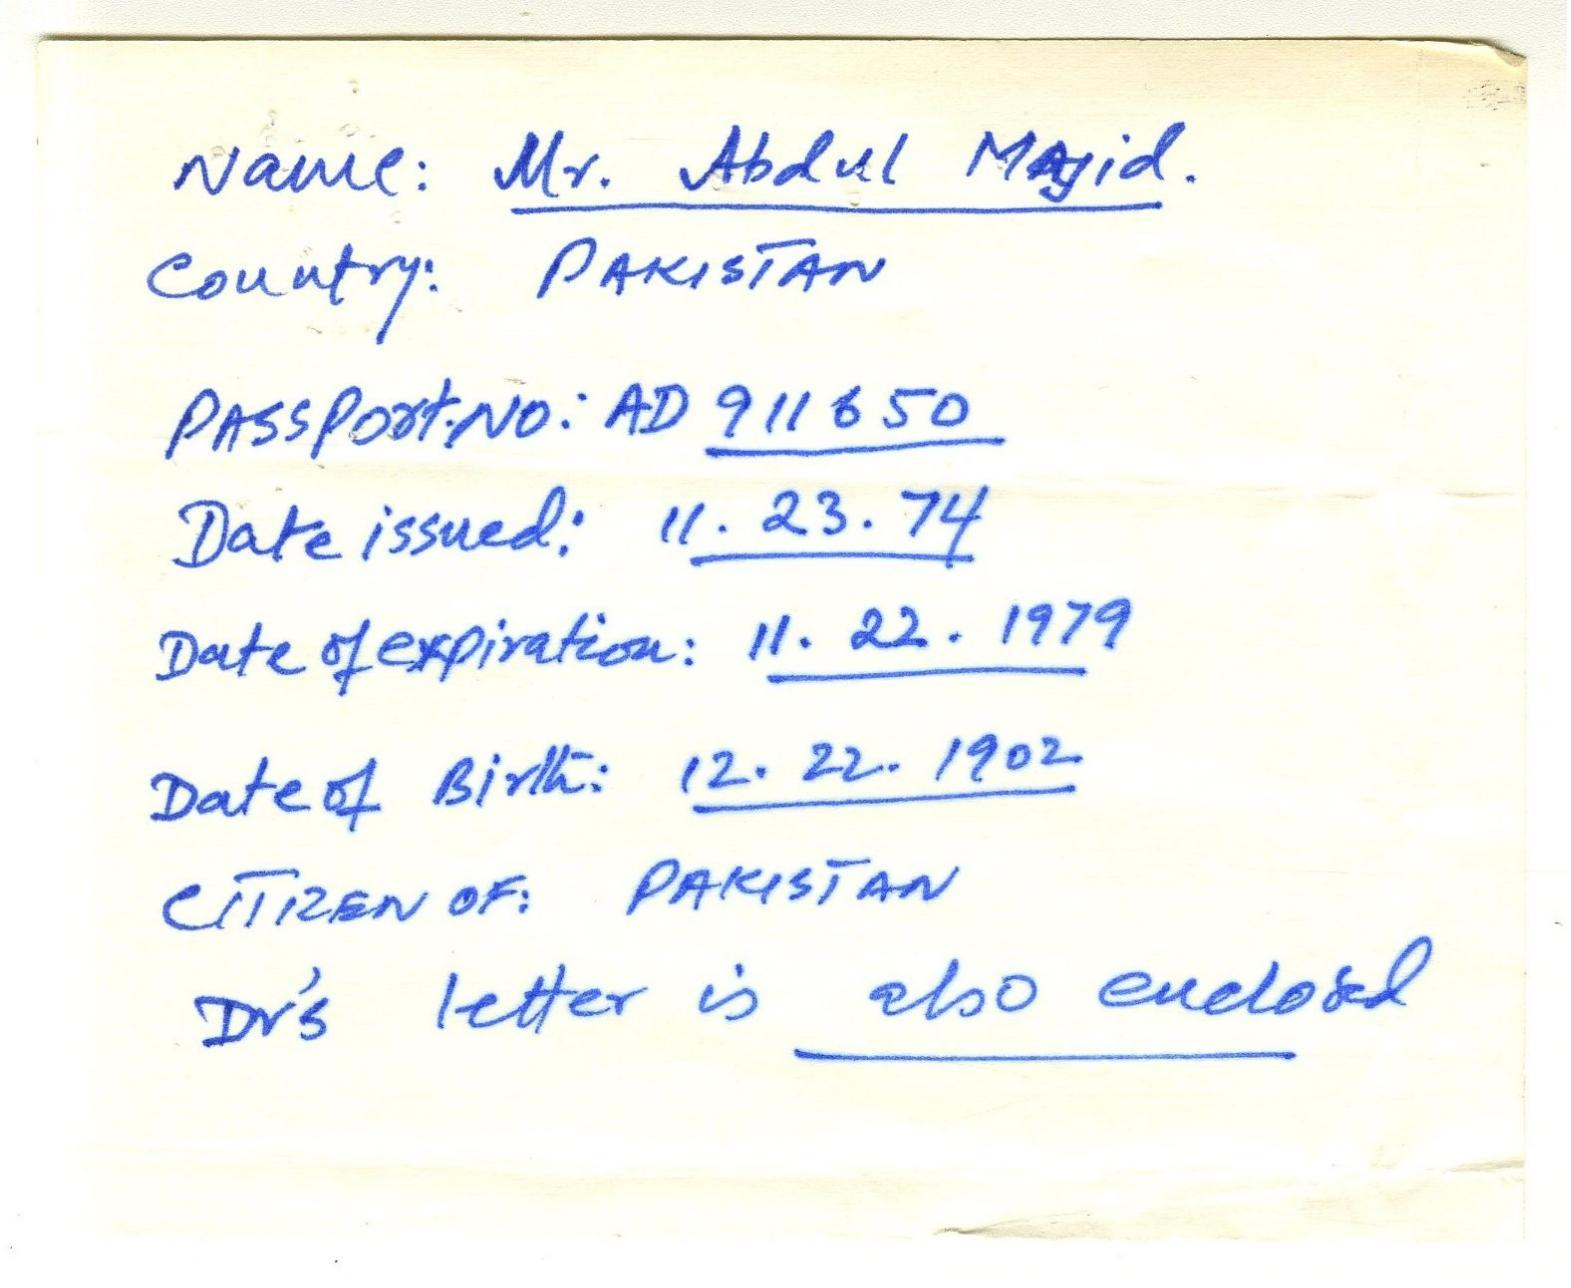 Name: Mr. Abdul Majid.
Country: PAKISTAN
PASSPort.NO: AD 911650
Date issued: 11. 23. 74
Date of expiration: 11. 22. 1979
Date of Birth: 12. 22. 1902
CITIZEN OF: PAKISTAN
Dr's letter is also enclosed